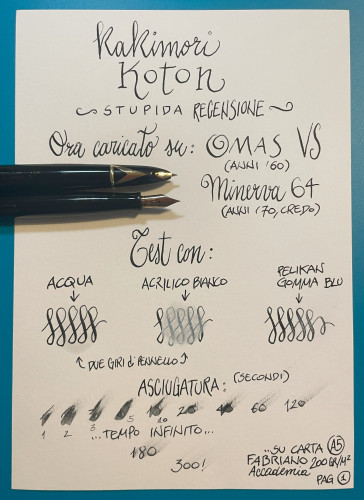 Kakimori
Koton
~ STUPIDA RECENSIONE ~
Ora caricato su: OMAS VS
(ANNI '60)
Minerva 64
(ANNI '70, CREDO)
Test con:
ACQUA
ACRILICO BIANCO
PELIKAN
GOMMA BLU
DUE GIRI di PENNELLO
ASCIUGATURA: (SECONDI)
1 2 3 5 10 20 40 60 120
...TEMPO INFINITO...
180
300!
...SU CARTA A5
FABRIANO 200GR/M²
Accademia
PAG 1